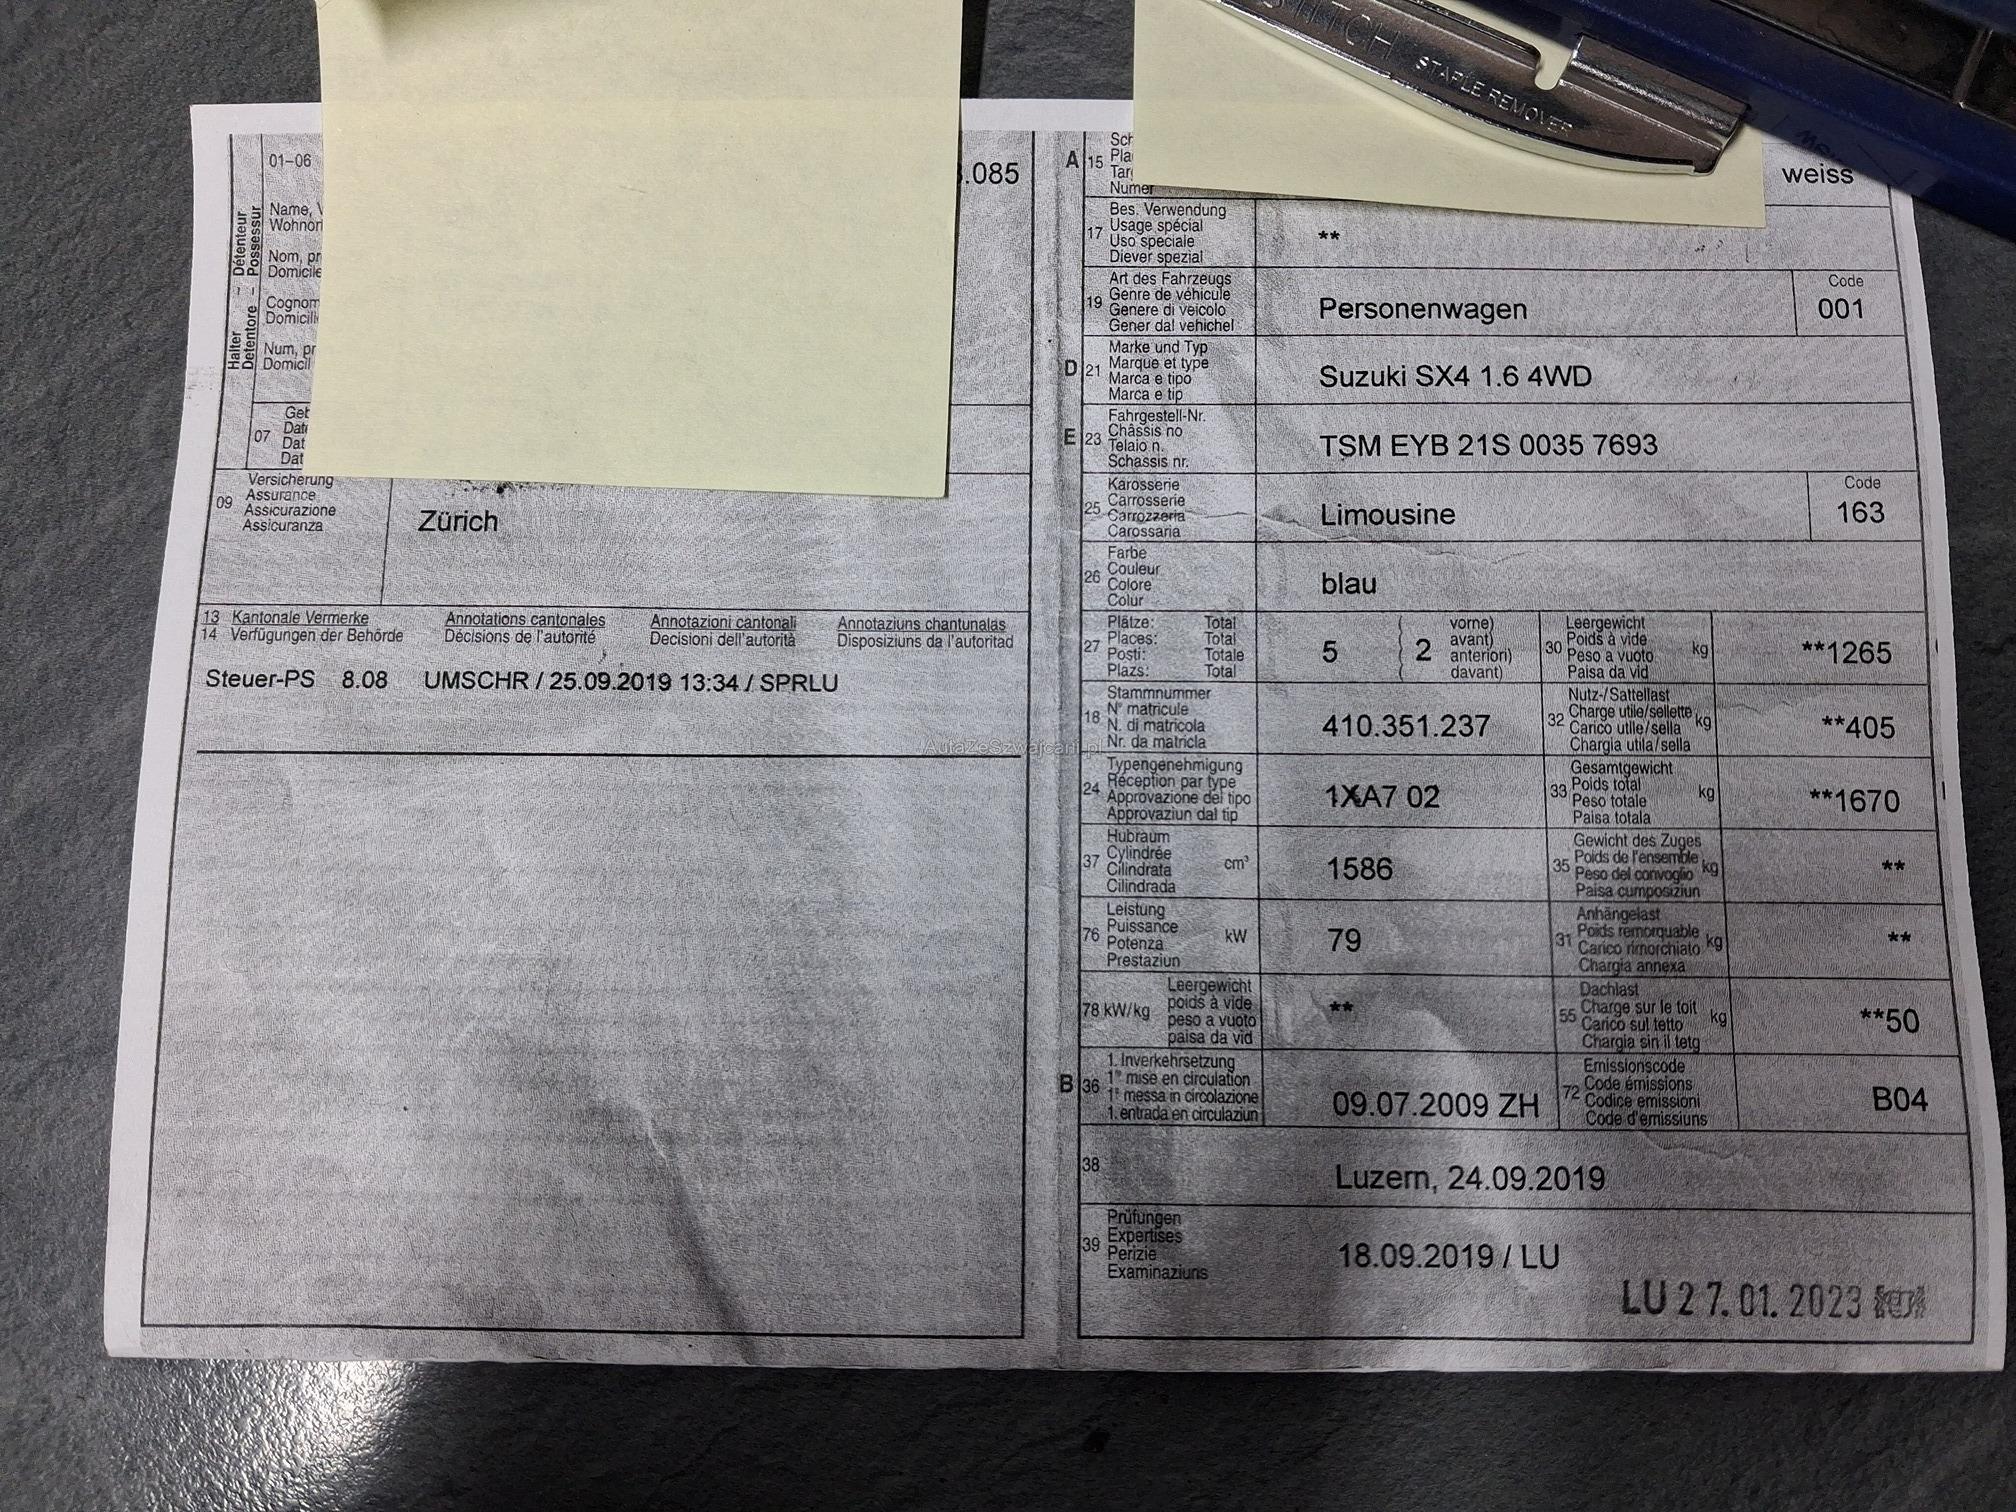 STAPLE REMOVER
01-06
.085
Name,
Wohnor
Nom, pr
Domicile
Cognom
Domicili
Num, pr
Domicil
Halter - Détenteur
Detentore - Possessur
07
Geb
Date
Dat
Dat
09
Versicherung
Assurance
Assicurazione
Assicuranza
Zürich
13 Kantonale Vermerke Annotations cantonales Annotazioni cantonali Annotaziuns chantunalas
14 Verfügungen der Behörde Décisions de l'autorité Decisioni dell'autorità Disposiziuns da l'autoritad
Steuer-PS 8.08 UMSCHR / 25.09.2019 13:34 / SPRLU
A 15
Sch
Pla
Targ
Numer
weiss
17
Bes. Verwendung
Usage spécial
Uso speciale
Diever spezial
**
19
Art des Fahrzeugs
Genre de véhicule
Genere di veicolo
Gener dal vehichel
Personenwagen
Code
001
D 21
Marke und Typ
Marque et type
Marca e tipo
Marca e tip
Suzuki SX4 1.6 4WD
E 23
Fahrgestell-Nr.
Châssis no
Telaio n.
Schassis nr.
TSM EYB 21S 0035 7693
25
Karosserie
Carrosserie
Carrozzeria
Carossaria
Limousine
Code
163
26
Farbe
Couleur
Colore
Colur
blau
27
Plätze: Total
Places: Total
Posti: Totale
Plazs: Total
5 ( 2
vorne)
avant)
anteriori)
davant)
30
Leergewicht
Poids à vide
Peso a vuoto
Paisa da vid
kg
**1265
18
Stammnummer
N° matricule
N. di matricola
Nr. da matricla
410.351.237
32
Nutz-/Sattellast
Charge utile/sellette
Carico utile/sella
Chargia utila/sella
kg
**405
24
Typengenehmigung
Réception par type
Approvazione del tipo
Approvaziun dal tip
1XA7 02
33
Gesamtgewicht
Poids total
Peso totale
Paisa totala
kg
**1670
37
Hubraum
Cylindrée
Cilindrata
Cilindrada
cm³
1586
35
Gewicht des Zuges
Poids de l'ensemble
Peso del convoglio
Paisa cumposiziun
kg
**
76
Leistung
Puissance
Potenza
Prestaziun
kW
79
31
Anhängelast
Poids remorquable
Carico rimorchiato
Chargia annexa
kg
**
78 kW/kg
Leergewicht
poids à vide
peso a vuoto
paisa da vid
**
55
Dachlast
Charge sur le toit
Carico sul tetto
Chargia sin il tetg
kg
**50
B 36
1. Inverkehrsetzung
1re mise en circulation
1a messa in circolazione
1. entrada en circulaziun
09.07.2009 ZH
72
Emissionscode
Code émissions
Codice emissioni
Code d'emissiuns
B04
38
Luzern, 24.09.2019
39
Prüfungen
Expertises
Perizie
Examinaziuns
18.09.2019 / LU
LU 27.01.2023
AutaZeSzwajcarii.pl